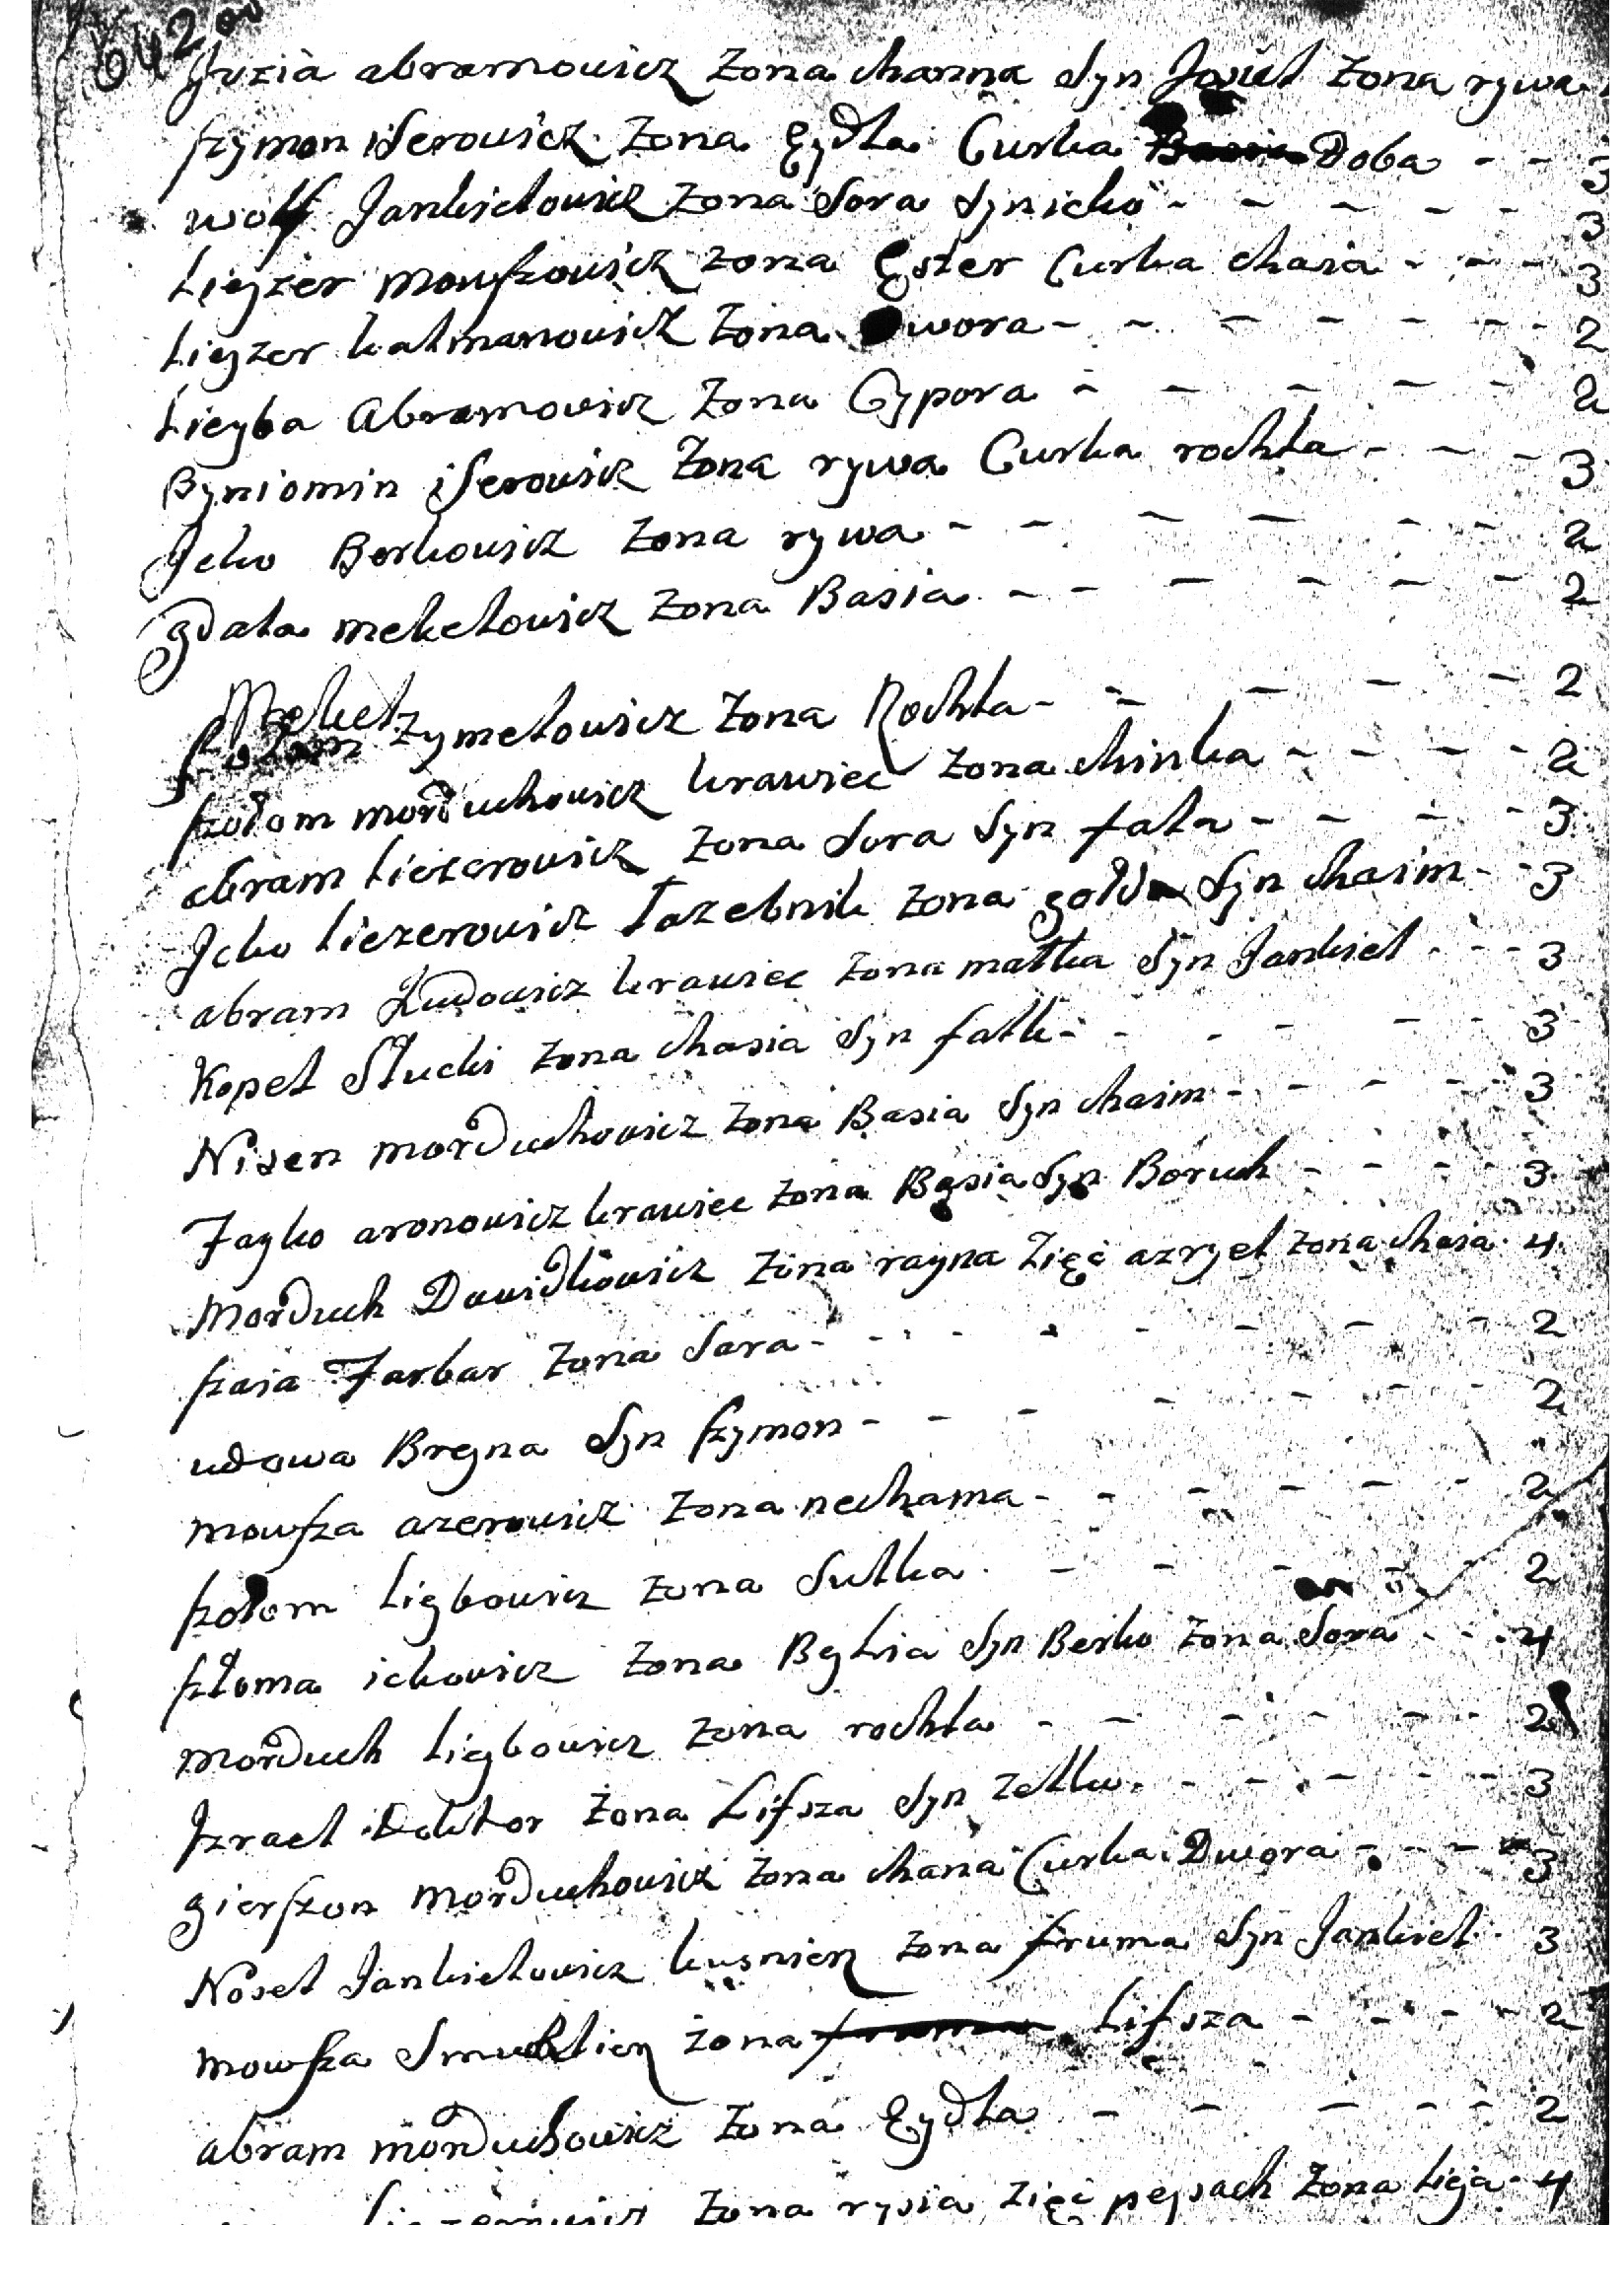 642
Jozia abramowicz żona channa Syn Josiel żona rywa
szymon iSerowicz żona Eydla Curka Basia Doba - - 3
wolf Jankielowicz żona Sora Syn icko - - - - - 3
Lieyzer mowszowicz żona Ester Curka chaia - - - 3
Lieyzer kalmanowicz żona Dwora - - - - - - - 2
Lieyba Abramowicz żona Cypora - - - - - 2
Byniomin iSerowicz żona rywa Curka rochla - - - 3
Icko Berkowicz żona rywa - - - - - - 2
gdala mekelowicz żona Basia - - - - - - 2
Mekel zymelowicz żona Rochla - - - - - 2
szołom morduchowicz krawiec żona chinka - - - - 2
abram Liezerowicz żona Sora Syn fala - - - - 3
Icko Liezerowicz Łazebnik żona gołda Syn chaim - - 3
abram Judowicz krawiec żona małka Syn Jankiel - - - 3
Kopel Słucki żona chasia Syn falk - - - - - - 3
Nisen morduchowicz żona Basia Syn chaim - - - - - 3
Fayko aronowicz krawiec żona Basia Syn Boruch - - - - 3
Morduch Dawidkowicz żona rayna Zięć azryel żona chaia - 4
szaia Farbar żona Sara - - - - - - - - - 2
udowa Breyna Syn szymon - - - - - - - 2
mowsza azerowicz żona nechama - - - - - - 2
szołom Leybowicz żona Sulka - - - - - - 2
szłoma ickowicz żona Beylia Syn Berko żona Sora - - - 4
morduch Leybowicz żona rochla - - - - - - - 2
Izrael Doktor żona Lifsza Syn Zelko - - - - - - - 3
gierszon morduchowicz żona chana Curka Dwora - - - - 3
Nosel Jankielowicz kuśnierz żona fruma Syn Jankiel - - 3
mowsza Smuklierz żona fruma Lifsza - - - - - 2
abram morduchowicz żona Eydla - - - - - 2
Liezerowicz żona rysia Zięć peysach żona Lieja - 4